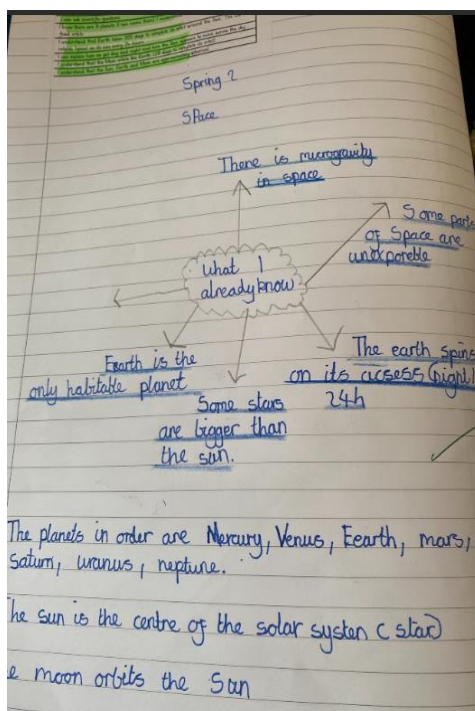 Spring 2
Space
There is microgravity
in space
Some parts
of Space are
unexporeble
What I
already know
Eearth is the
only habitable planet
The earth spins
on its acsess
24h
Some stars
are bigger than
the sun.
The planets in order are Mercury, Venus, Eearth, mars,
Saturn, uranus, neptune.
The sun is the centre of the solar systen (star)
e moon orbits the Sun